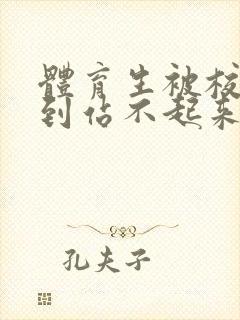 體育生被校
到估不起来
孔夫子